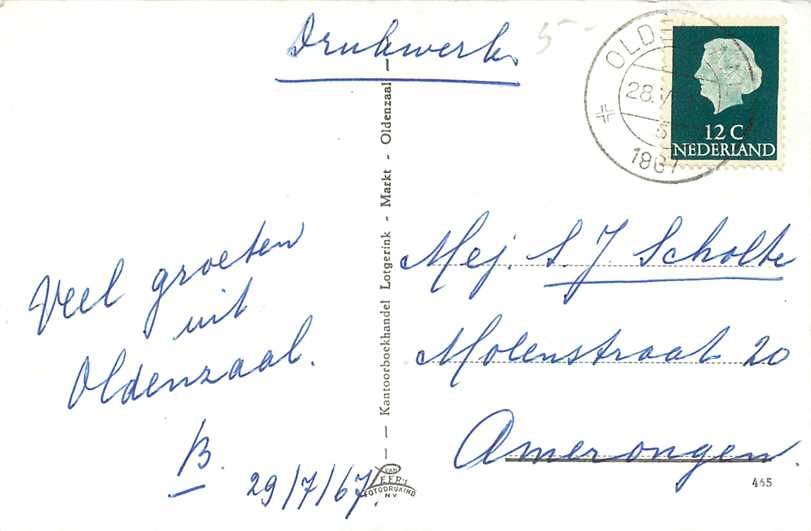 Drukwerk
5-
OLD
28.V
1967
12 C
NEDERLAND
Veel groeten
uit
Oldenzaal.
B.
29/7/67.
Kantoorboekhandel Lotgerink - Markt - Oldenzaal
VAN
LEER'S
FOTODRUKIND
NV
Mej. S. J Scholte
Molenstraat 20
Amerongen.
465